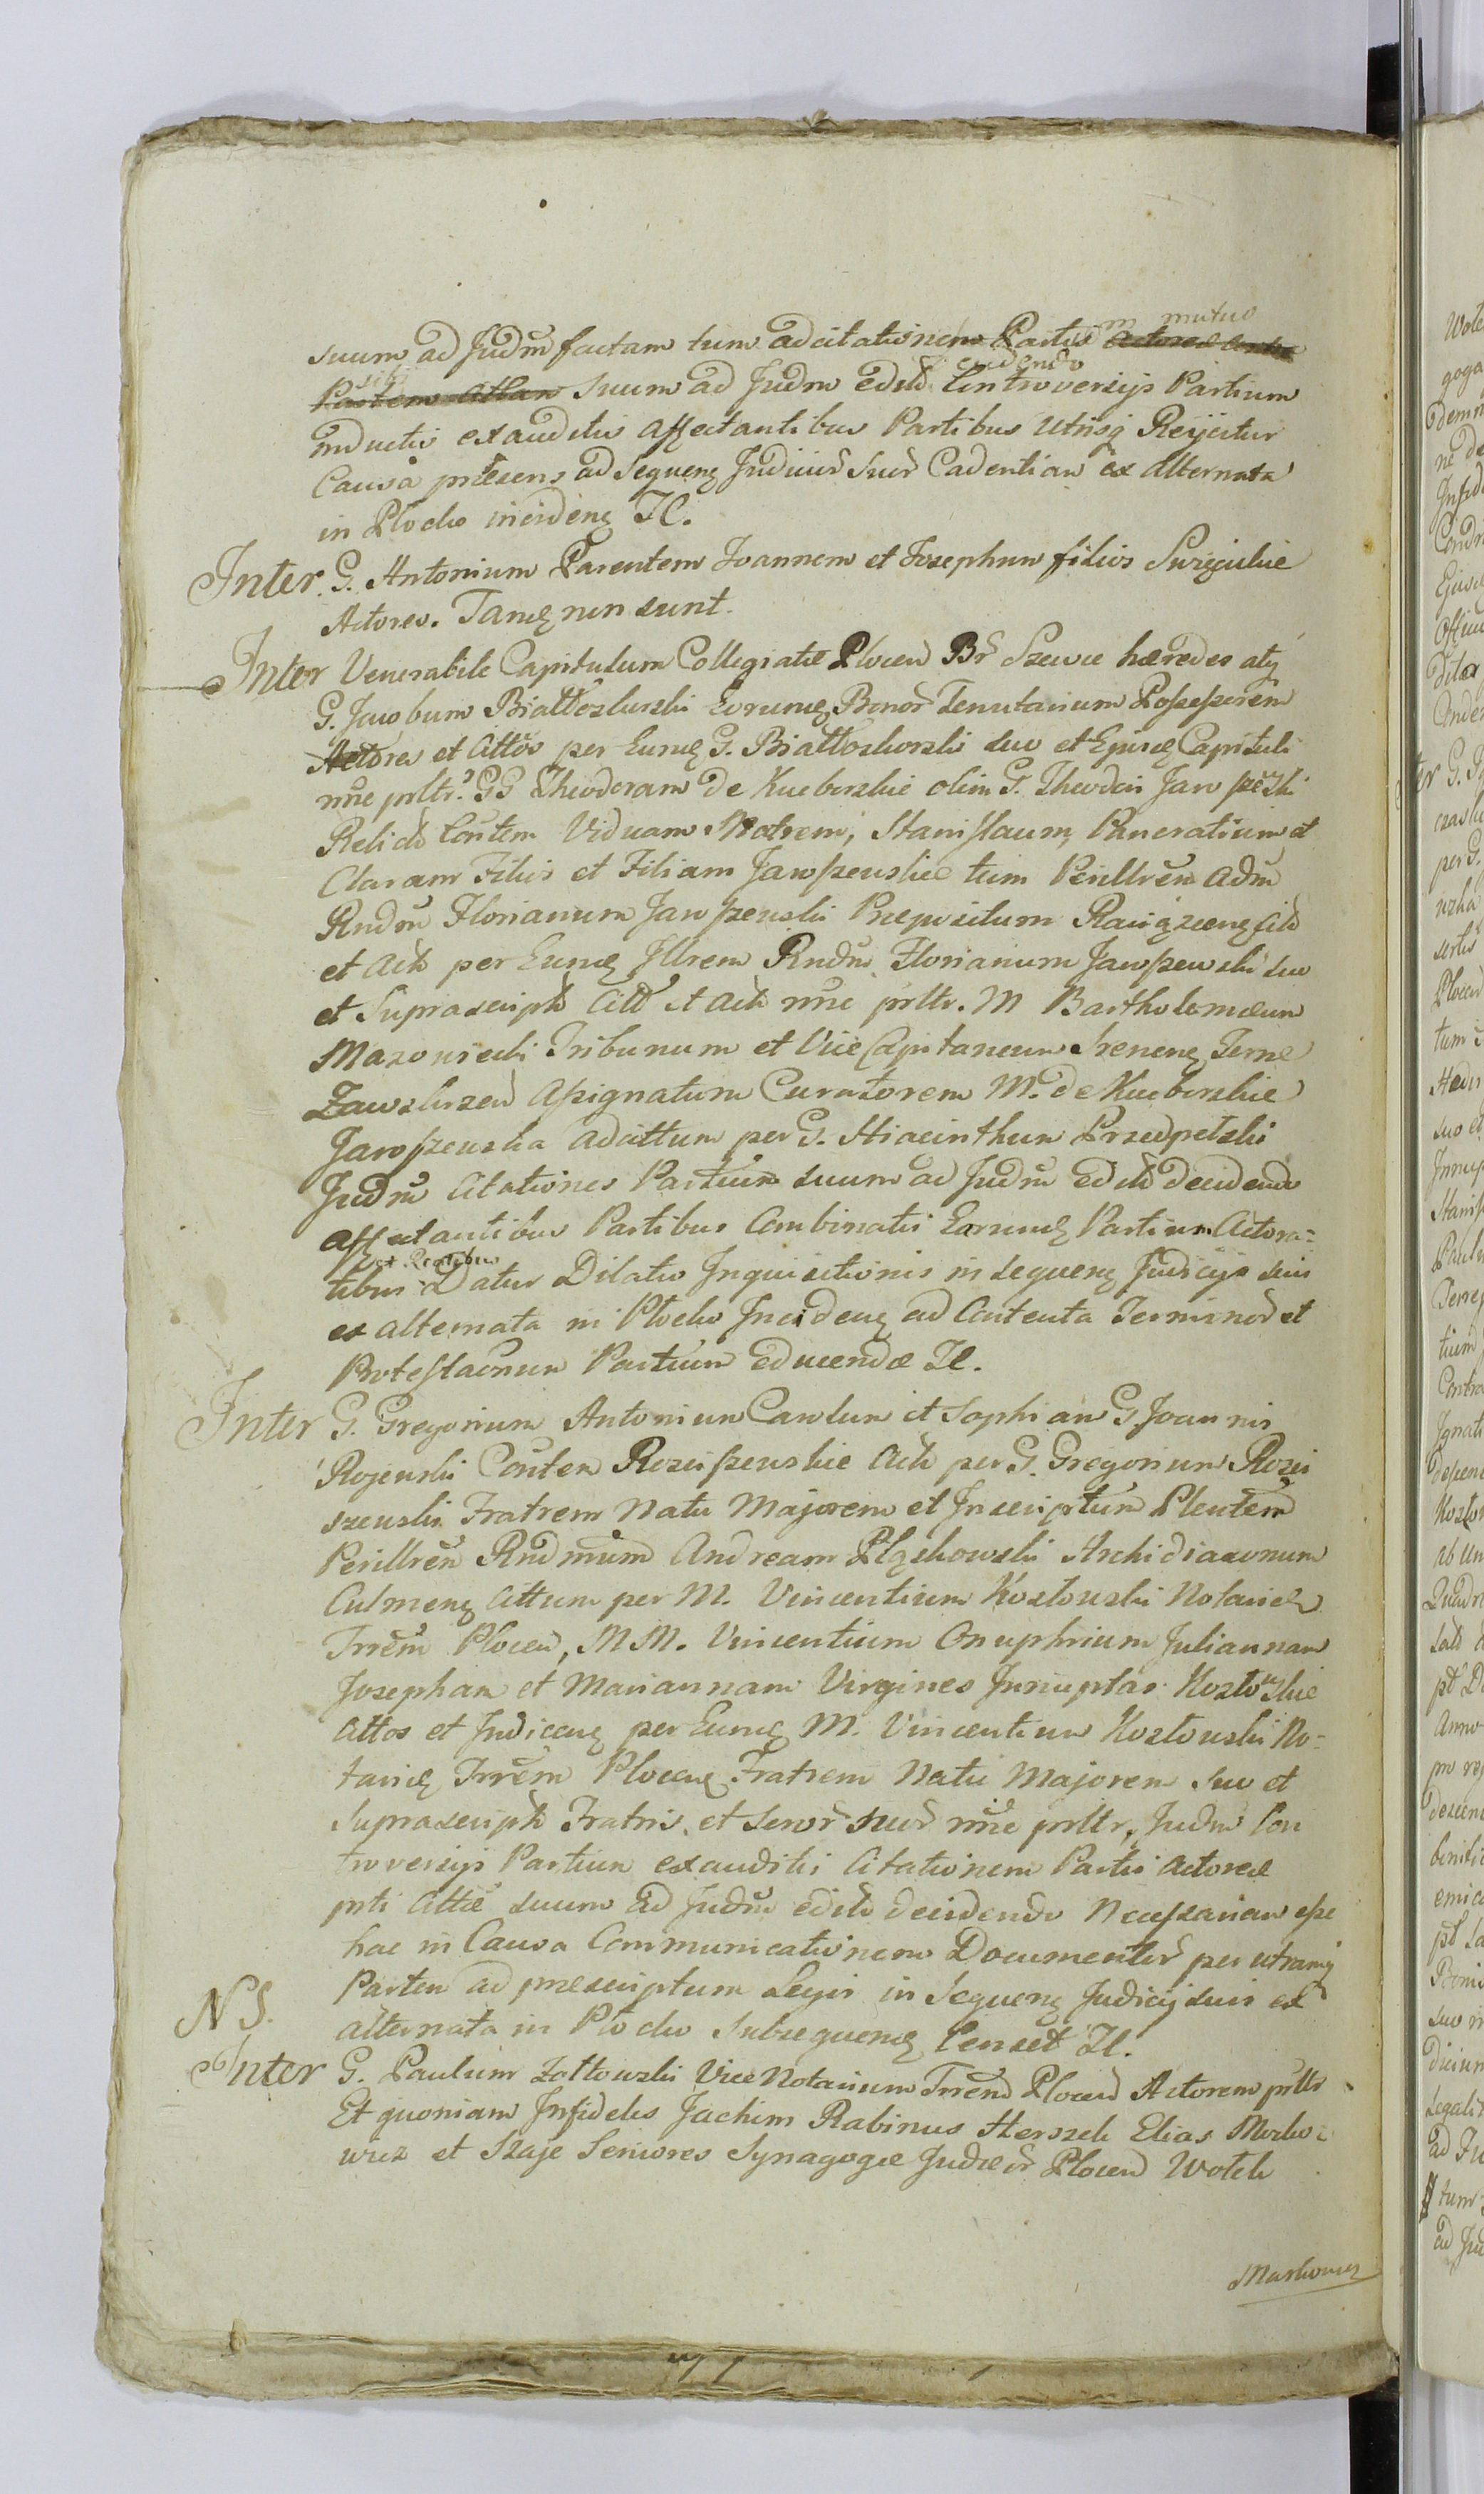 in mutuo
suum ad Judm̄ factam tum adcitationem Partis Actoreæ Contra
sibi decidendo
Partem Attan suum ad Judm edit Controversijs Partium
inductis exauditis affectantibus Partibus Utrisq Rejicitur
Causa præsens ad Sequeng Judicior Suor Cadentian ex Alternata
in Plocko incideng Il.
Inter G. Antonium Parentem Joannem et Josephum filios
Actores. Tanq non sunt.
Inter Venerabile Capitulum Collegiatæ Plocen Br Szewce hæredes atq
G. Jacobum Białłoskurski Eorumq Bonor Tenutarium Possessorem
Actores et Attos per Eumq G. Białłoskorski suo et Ejusq Capituli
nñe prltr. GG Theodoram de Kucborskie olim G. Theodori Jaroszeski
Relict Contem Viduam Matrem, Stanislaum, Pancratium et
Claram Filios et Filiam Jaroszewskie tum Perillren Adm
Rndm̄ Florianum Jaroszewski Præpositum Raciązeng Citt
et Actt per Eumq Illrem Rndm̄ Florianum Jaroszewski suo
et Suprascript Citt et Actt nñe prltr. M Bartholomæum
Mazowiecki Tribunum et Vice Capitaneum Sreneng Terræ
Zawskrzen Assignatum Curatorem M. de Kucborskie
Jaroszewska adcittum per G. Hiacinthum Przedpełski
Judm̄ Citationes Partium suum ad Judm̄ edit decidendo
affectantibus Partibus Combinatis Earumq Partium Actora-
et Reatibus
tibus Datur Dilatio Inquisitionis in Sequeng Judicijs suis
ex alternata in Plocko Incideng ad Contenta Terminor et
Protestaonum Partium educendæ Il.
Inter G. Gregorium Antonium Carolum et Sophian G Joannis
Rojewski Conten Rosciszewskie Actt per G. Gregorium Rosci
szewski Fratrem Natu Majorem et Inscriptum Plentem
Perillren Rndmum Andream Pląskowski Archidiaconum
Culmeng Attum per M. Vincentium Kozłowski Notarieū
Trrem Plocen, MM. Vincentium Onuphrium Juliannam
Josepham et Mariannam Virgines Innuptas Kozłowskie
Attos et Indiceng per Eumq M. Vincentium Kozłowski No-
tariq Trrem Ploceng Fratrem Natu Majorem suo et
Suprascript Fratris et Soror suor nñe prltr, Judm̄ Con
troversijs Partium exauditis Citationem Partis Actoreæ
prti Attæ suum ad Judm̄ edit decidendo Necessariam esse
hac in Causa Communicationem Documentor per utramq
Partem ad præscriptum Legis in Sequeng Judicijs suis ex
NS. alternata in Plocko Subsequenq Censet Il.
Inter G. Paulum Zołtowski Vice Notarium Trren Plocen Actorem prltr
Et quoniam Infideles Jachim Rabinus Herszek Elias Mosko-
wicz et Szaje Seniores Synagogæ Judæor Plocen Wołek
Markowicz